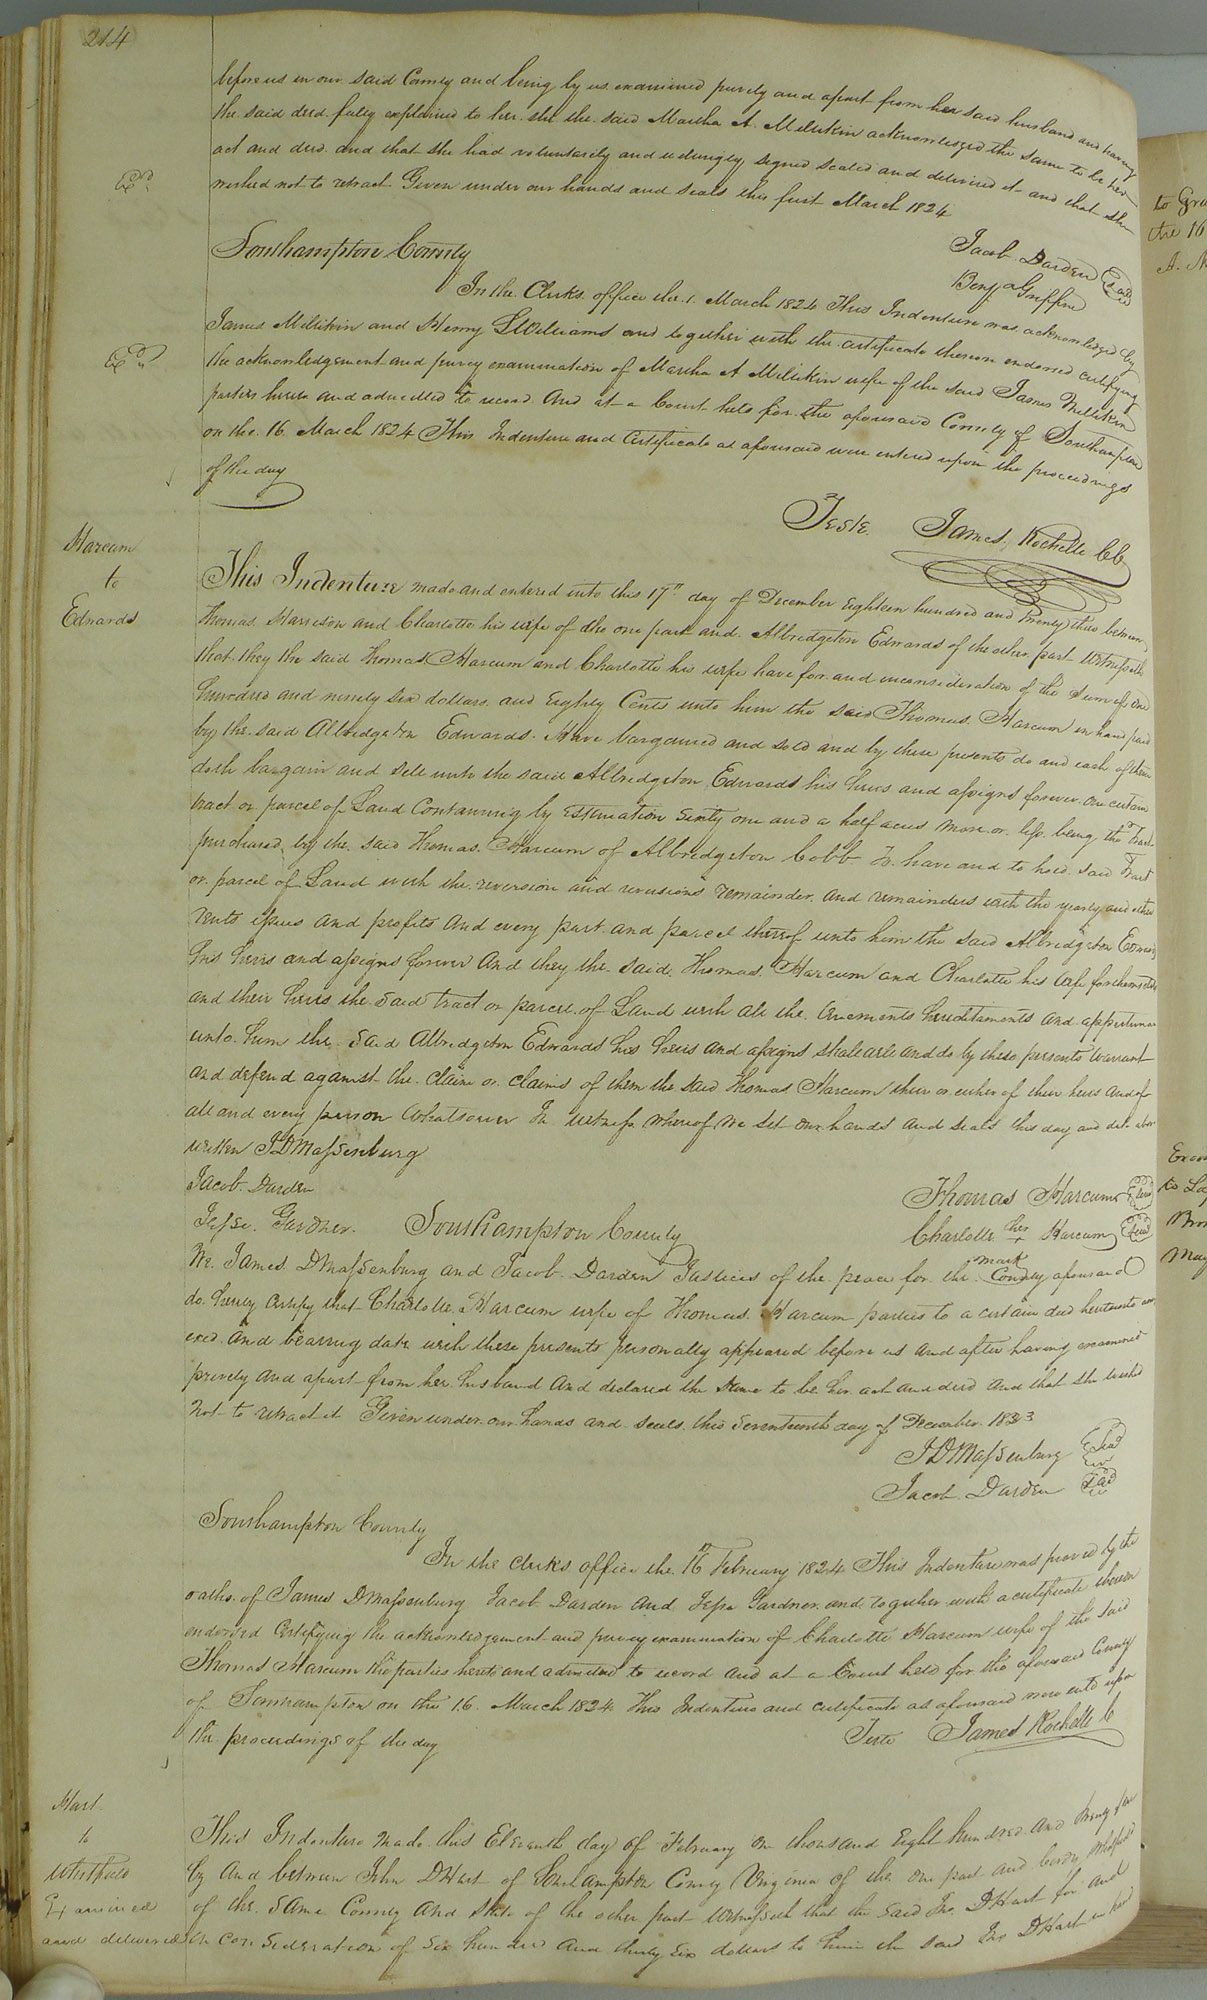 214
before us in our said County and being by us examined privily and apart from her said husband and having
the said deed fully explained to her she the said Martha A. Millikin acknowledged the same to be her
act and deed and that she had voluntarily and willingly signed sealed and delivered it and that she
wished not to retract Given under our hands and seals this first March 1824
Jacob Darden Seal
Benja Griffin
Southampton County
In the Clerks office the 1. March 1824 This Indenture was acknowledged by
James Millikin and Henry L Williams and together with the certificate thereon endorsed certifying
the acknowledgement and privy examination of Martha A Millikin wife of the said James Millikin
parties hereto and admitted to record And at a Court held for the aforesaid County of Southampton
on the 16 March 1824 This Indenture and Certificate as aforesaid were entered upon the proceedings
of the day
Teste James Rochelle CC
Harcum
to
Edwards
This Indenture made and entered into this 17th day of December Eighteen hundred and Twenty three between
Thomas Harrison and Charlotte his wife of the one part and Albridgeton Edwards of the other part Witnesseth
that they the said Thomas Harcum and Charlotte his wife have for and in consideration of the Sum of One
hundred and ninety six dollars and Eighty Cents unto him the said Thomas Harcum in hand paid
by the said Albridgeton Edwards. Have bargained and sold and by these presents do and each of them
doth bargain and sell unto the said Albridgeton Edwards his heirs and assigns forever one certain
tract or parcel of Land Containing by Estimation Sixty one and a half acres more or less being the Tract
purchased by the said Thomas Harcum of Albridgeton Cobb To have and to hold said Tract
or parcel of Land with the reversion and reversions remainder and remainders with the yearly and other
rents issues and profits and every part and parcel thereof unto him the said Albridgeton Edwards
his heirs and assigns forever And they the said Thomas Harcum and Charlotte his wife for themselves
and their heirs the said tract or parcel of Land with all the tenements hereditaments and appurtenances
unto him the said Albridgeton Edwards his heirs and assigns shall and do by these presents warrant
and defend against the claim or claims of them the said Thomas Harcum their or either of their heirs and of
all and every person whatsoever In witness whereof we set our hands and seals this day and date above
written J D Massenburg
Jacob Darden
Thomas Harcum Seal
Jesse Gardner.
Charlotte her x mark Harcum Seal
Southampton County
We James D Massenburg and Jacob Darden Justices of the peace for the County aforesaid
do hereby Certify that Charlotte Harcum wife of Thomas Harcum parties to a certain deed hereunto ann
exed and bearing date with these presents personally appeared before us and after having examined
privily and apart from her husband and declared the same to be her act and deed and that she wished
not to retract it Given under our hands and seals this Seventeenth day of December 1823
J D Massenburg Seal
Jacob Darden Seal
Southampton County
In the Clerks office the 16 February 1824 This Indenture was proved by the
oaths of James D Massenburg Jacob Darden and Jesse Gardner and together with a certificate thereon
endorsed Certifying the acknowledgement and privy examination of Charlotte Harcum wife of the said
Thomas Harcum the parties hereto and admitted to record and at a Court held for the aforesaid County
of Southampton on the 16. March 1824 This Indenture and certificate as aforesaid were entd upon
the proceedings of the day
Teste James Rochelle C
Hart
to
Whitfield
Examined
and delivered
This Indenture made this Eleventh day of February One thousand Eight hundred and Twenty four
by and between John D Hart of Southampton County Virginia of the one part and Whitfield
of the same County and State of the other part Witnesseth that the said Jno. D Hart for and
in consideration of Six hundred and thirty six dollars to him the said Jno D Hart in hand